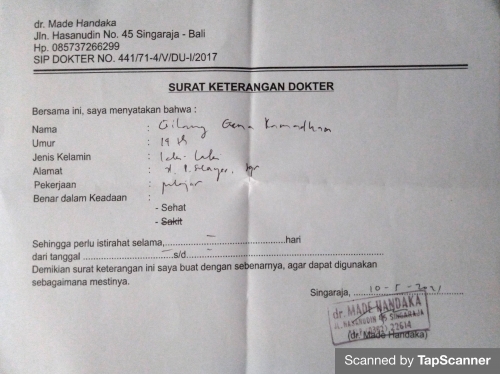 dr. Made Handaka
Jln. Hasanudin No. 45 Singaraja - Bali
Hp. 085737266299
SIP DOKTER NO. 441/71-4/V/DU-I/2017
SURAT KETERANGAN DOKTER
Bersama ini, saya menyatakan bahwa :
Nama : Gilang Gema Ramadhan
Umur : 19 th
Jenis Kelamin : laki-laki
Alamat :
Pekerjaan : pelajar
Benar dalam Keadaan :
- Sehat
- Sakit
Sehingga perlu istirahat selama,..........–..........hari
dari tanggal ..........–..........s/d..........–..........
Demikian surat keterangan ini saya buat dengan sebenarnya, agar dapat digunakan
sebagaimana mestinya.
Singaraja, 10-5-2021
dr. MADE HANDAKA
JL. HASANUDIN 45 SINGARAJA
22614
(dr. Made Handaka)
Scanned by TapScanner